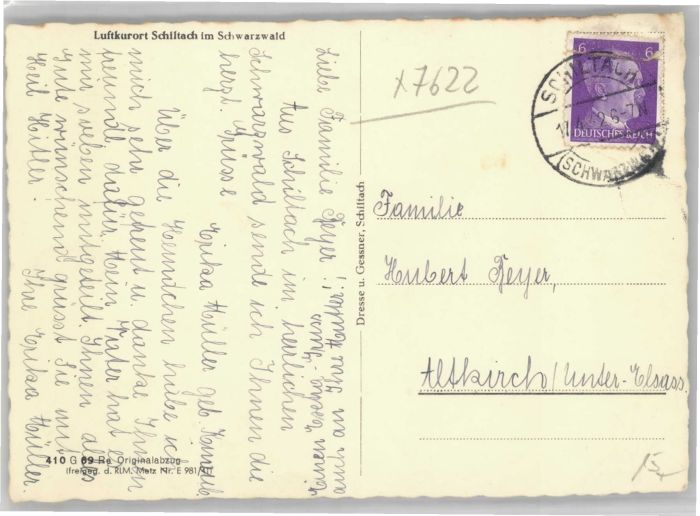 Luftkurort Schiltach im Schwarzwald
Liebe Familie Beyer!
Aus Schiltach im herrlichen
Schwarzwald sende ich Ihnen die
herzl. Grüsse
Erika Müller geb.
Über die Hemdchen habe ich
mich sehr gefreut u. danke Ihnen
freundl. dafür. Mein Vater hat es
mir soeben mitgeteilt. Ihnen alles
Gute wünschend grüsst Sie mit
Heil Hitler.
Ihre Erika Müller.
Einen Extra-Gruss
auch an Ihre Mutter!
410 G 69 Ra Originalabzug
(freigeg. d. RLM, Metz Nr. E 981/41)
Dresse u. Gessner, Schiltach
x7622
6 6
DEUTSCHES REICH
SCHILTACH
(SCHWARZWALD)
Familie
Hubert Beyer,
Altkirch/Unter-Elsass.
15,-